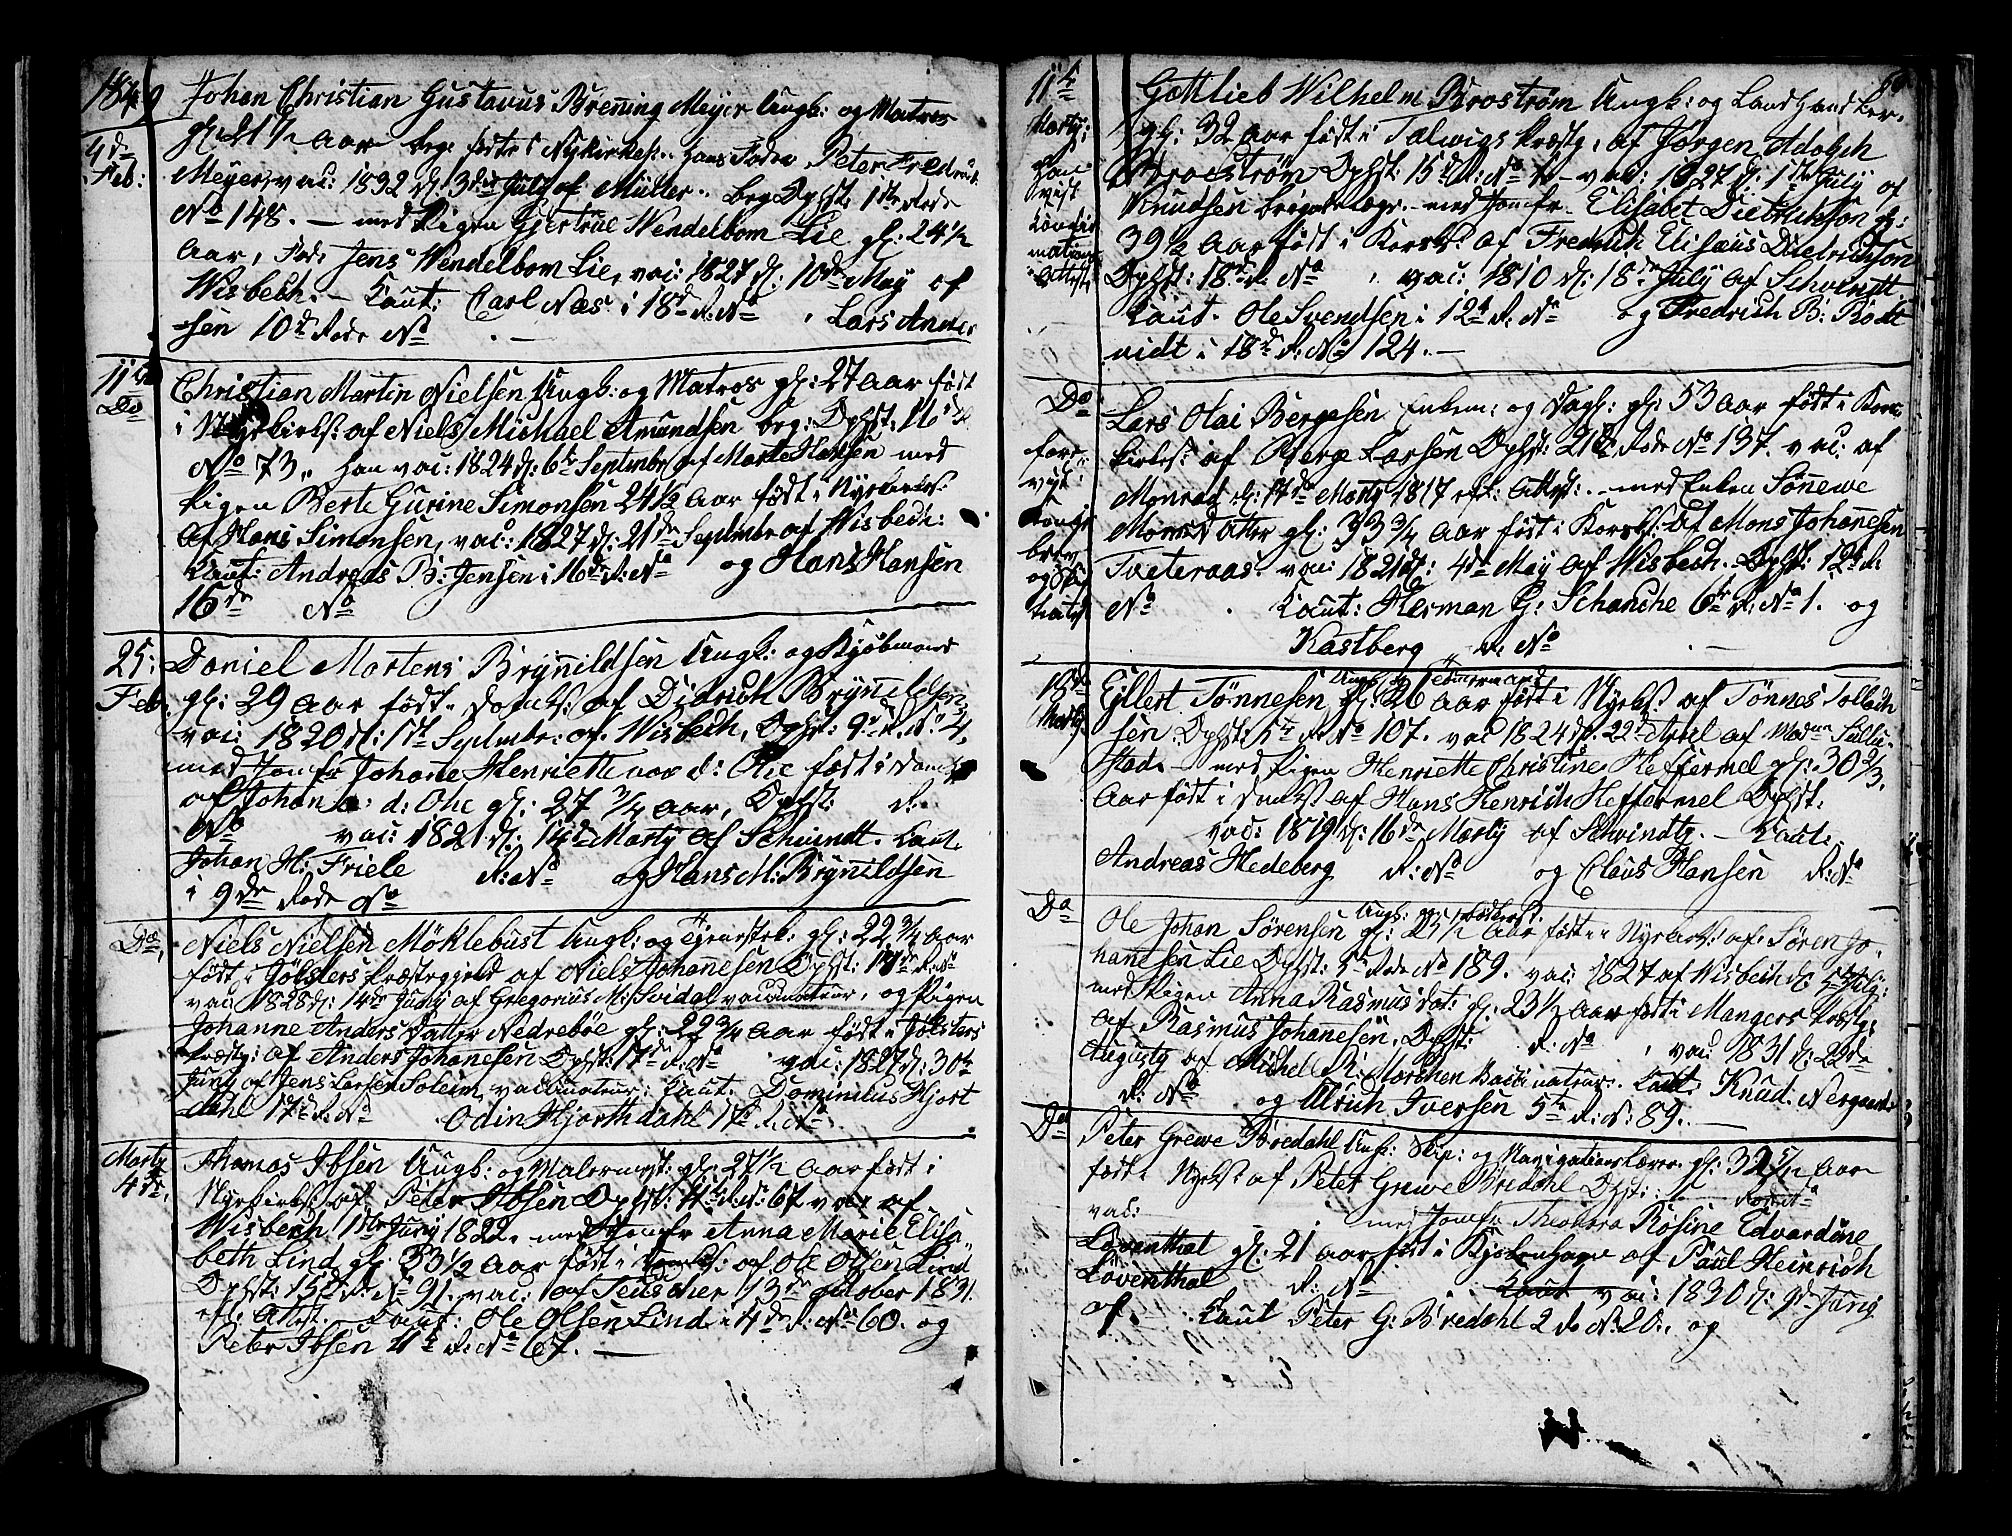 1849
Johan Christian Gustavus Brening Meyer Ungk: og Matros
4de Feb:
gl: 21 1/2 Aar beg: født i Nykirkes: hans Fader Peter Fredrik
Meyer, vac: 1832 d: 3die July af Müller. beg Ophst: 1ste Rode
No 148. — med Pigen Gjertrue Wendelbom Lie gl: 24 1/2
Aar, Fad: Jens Wendelbom Lie, vac: 1827 d: 10de May af
Wisbech. — Caut: Carl Næs i 18de R: No , Lars Anner
sen 10de Rode No . —
11te Do
Christian Martin Nielsen Ungk: og Matros gl: 27 Aar født
i Nyekirks: af Niels Michael Amundsen beg: Ophst: 16de
No 73, han vac: 1824 d: 6te Septmbr af Marte Hansen med
Pigen Berte Gurine Simonsen 24 1/2 Aar født i Nyekirks:
af Hans Simonsen, vac: 1827 d: 21de Septmbr af Wisbech:
Caut: Andreas B: Jensen i 16de R: No og Hans Hansen
16de No
25: Feb.
Daniel Mortens Brynildsen Ungk: og Kjøbmand
gl: 29 Aar født i Domks: af Didrich Brynildsen,
vac: 1820 d: 1ste Septmbr: af Wisbech, Ophst: 9de R: No 4,
med Jomfr Johane Henriette von d: Ohe født i Domks
af Johan d: Ohe gl: 27 3/4 Aar, Ophst: R:
No vac: 1821 d: 14de Marty af Schvindt. Caut.
Johan H: Friele R: No og Hans M: Brynildsen
i 9de Rode No
Do,
Niels Nielsen Möklebust Ungk: og Tjenestek: gl: 22 3/4 Aar
født i Jølsters Præstegjeld af Niels Johannesen Ophst: 17de R: No
vac 1828 d: 14de Juny af Gregorius M: Svidal vaccinateur, og Pigen
Johanne Anders Datter Nedrebøe gl: 22 3/4 Aar født i Jølsters
Præstg: af Anders Johanesen Ophst: 17de R: No vac: 1827 d: 30te
Juny af Jens Larsen Soleim, vaccinateur: Caut: Dominicus Hjort
dahl 17de R: No Odin Hjorthdahl 17de R: No .
Marty 4de,
Thomas Ibsen Ungk: og Malermest: gl: 27 1/2 Aar født i
Nyekirks: af Peter Ibsen Ophst: 11te R: No: 67 vac af
Wisbech 11te Juny 1822. med Jomfr Anna Marie Elisa-
beth Lind gl: 33 1/2 Aar født i Korsks: af Ole Olsen Lind
Ophst: 15de R: No 91. vac: af Teuscher 13de October 1831.
efl: Attest. Caut: Ole Olsen Lind i 4de R: No 60. og
Peter Ibsen 11te R: No 67. —
11te Marty:
Gottlieb Wilhelm Broström Ungk: og Landhandler.
gl: 32 Aar født i Talwigs Præstg, af Jørgen Adolph
Broström Ophst: 15de R: No vac: 1827 d: 1ste July af
Knudsen med Jomfr. Elisabet Dietrichson gl:
39 1/2 Aar født i Korsks: af Fredrich Elisæus Dietrichson
Ophst: 18de R: No , vac: 1810 d: 18de July af Schvindt
Caut. Ole Svendsen i 12te R: No og Fredrich B: Rodt
vidt i 18de R: No 124. —
Do
Lars Olai Bergesen Enkem: og Dagl: gl: 53 Aar født i Kors
kirks: af Berge Larsen Ophst: 21de Rode No 137. vac: af
Monrad d: 14de Marty 1817 efl: Attest: med Enken Sønewe
Monsdatter gl: 33 3/4 Aar født i Korsks: af Mons Johannesen
Tveteraas. vac: 1821 d: 4de May af Wisbech. Ophst: 12te R:
No . Caut: Herman G: Schanche 6te R: No 1. og
Kastberg R: No . —
18de Marty.
Eilert Tönnesen Ungk: og Tømmermand gl: 26 Aar født i Nyeks: af Tönnes Tollach
sen Ophst: 5te R: No 107. vac 1824 d: 22de April af
stad. med Pigen Henriette Christine Heffermel gl: 30 2/3.
Aar født i Domks: af Hans Henrich Heffermel Ophst:
vac: 1819 d: 16de Marty af Schvindty. — Caut:
Andreas Hedeberg R: No og Claus Hansen R: No
Do
Ole Johan Sørensen Ungk: og gl: 25 1/2 Aar født i Nyekirks: af Søren Jo-
hannsen Lie Ophst: 5te Rode No 189. vac: 1827 af Wisbech d: 5 July:
med Pigen Anna Rasmusdat: gl: 23 1/2 Aar født i Mangers Præstg:
af Rasmus Johanesen, Ophst: R: No , vac: 1831 d: 22de
Augusty af Michel R: Morchen Vaccinatur. Caut: Knud Nergaard
R: No og Ulrich Iversen 5te R: No: 89. —
Do
Peter Grewe Bredahl Ungk: Skip: og Navigationslærer gl: 32 5/12 Aar
født i Nyeks: af Peter Grewe Bredahl Ophst: Rode No
vac: med Jomfr Theodora Rosine Edvardine
Löventhal gl: 21 Aar født i Kjøbenhavn af Paul Heinrich
Löventhal R: No Caut vac: 1830 d: 9de Juny
af . Caut Peter G: Bredahl 2 R No: 20., og